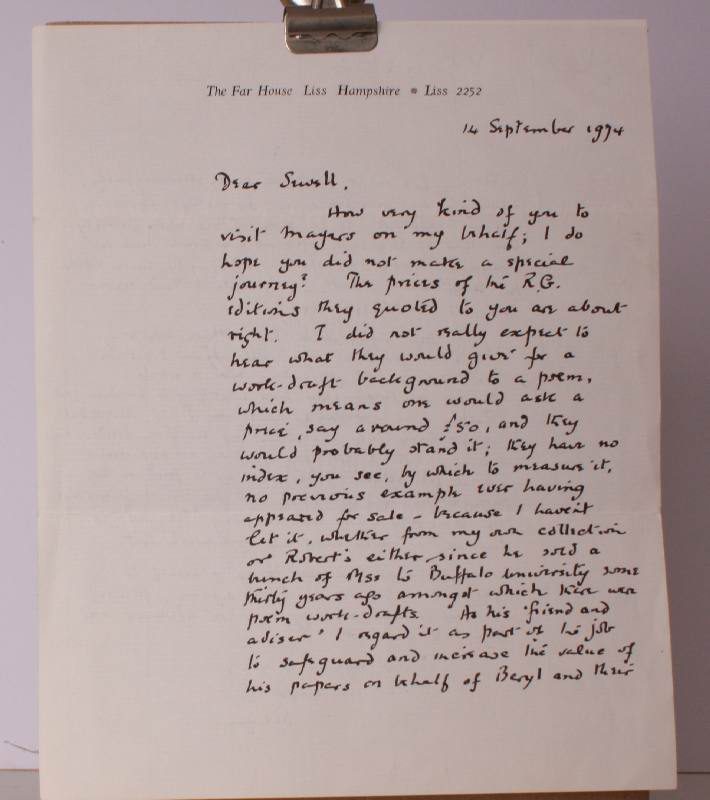 The Far House Liss Hampshire • Liss 2252
14 September 1974
Dear Sewell,
How very kind of you to
visit Mayers on my behalf; I do
hope you did not make a special
journey? The prices of the R.G.
editions they quoted to you are about
right. I did not really expect to
hear what they would give for a
work-draft background to a poem,
which means one would ask a
price, say around £50, and they
would probably stand it; they have no
index, you see, by which to measure it,
no previous example ever having
appeared for sale – because I haven't
let it, whether from my own collection
or Robert's either, since he sold a
bunch of Mss to Buffalo University some
thirty years ago amongst which were
poem work-drafts. As his 'friend and
adviser' I regard it as part of the job
to safeguard and increase the value of
his papers on behalf of Beryl and their